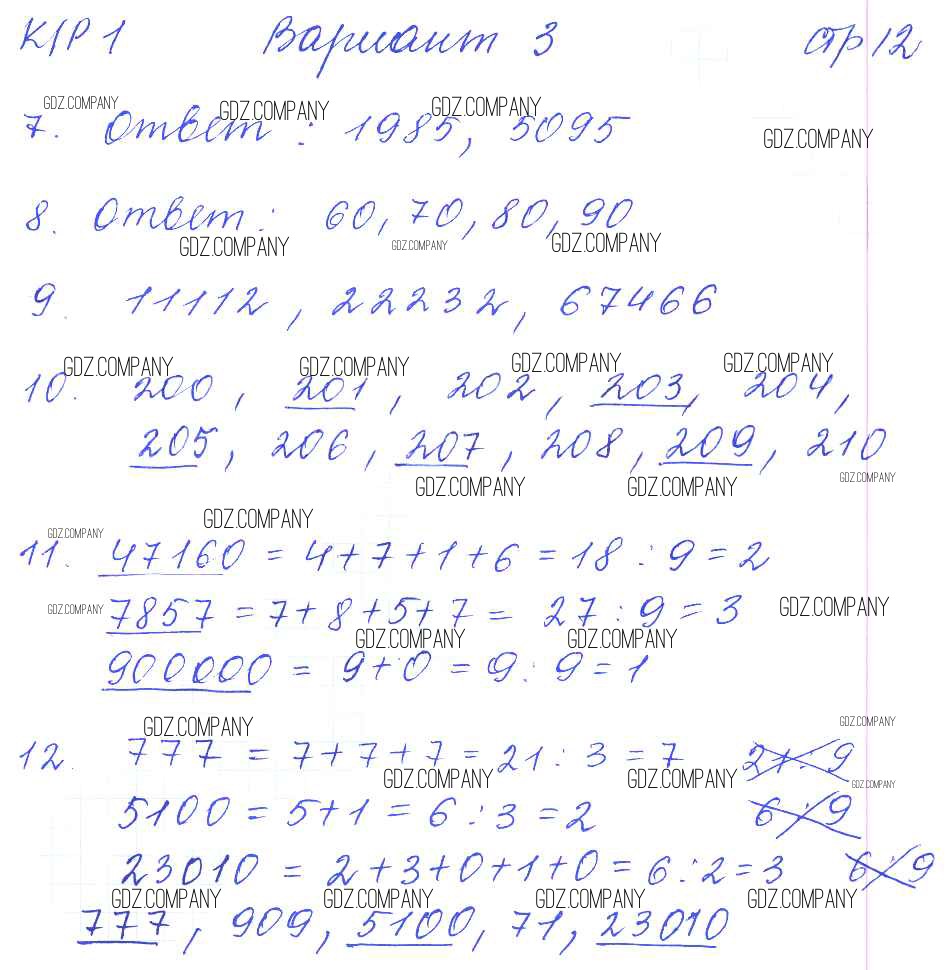 К/Р 1 Вариант 3 стр 12
GDZ.COMPANY GDZ.COMPANY GDZ.COMPANY GDZ.COMPANY
7. Ответ : 1985, 5095
8. Ответ: 60, 70, 80, 90
GDZ.COMPANY GDZ.COMPANY GDZ.COMPANY
9. 11112, 22232, 67466
GDZ.COMPANY GDZ.COMPANY GDZ.COMPANY GDZ.COMPANY
10. 200, 201, 202, 203, 204,
205, 206, 207, 208, 209, 210
GDZ.COMPANY GDZ.COMPANY GDZ.COMPANY
GDZ.COMPANY GDZ.COMPANY
11. 47160 = 4+7+1+6 = 18 : 9 = 2
GDZ.COMPANY GDZ.COMPANY
7857 = 7+8+5+7 = 27 : 9 = 3
GDZ.COMPANY GDZ.COMPANY
900000 = 9+0 = 9 : 9 = 1
GDZ.COMPANY GDZ.COMPANY
12. 777 = 7+7+7 = 21 : 3 = 7 21 : 9
GDZ.COMPANY GDZ.COMPANY GDZ.COMPANY
5100 = 5+1 = 6 : 3 = 2 6 : 9
23010 = 2+3+0+1+0 = 6 : 2 = 3 6 : 9
GDZ.COMPANY GDZ.COMPANY GDZ.COMPANY GDZ.COMPANY
777, 909, 5100, 71, 23010